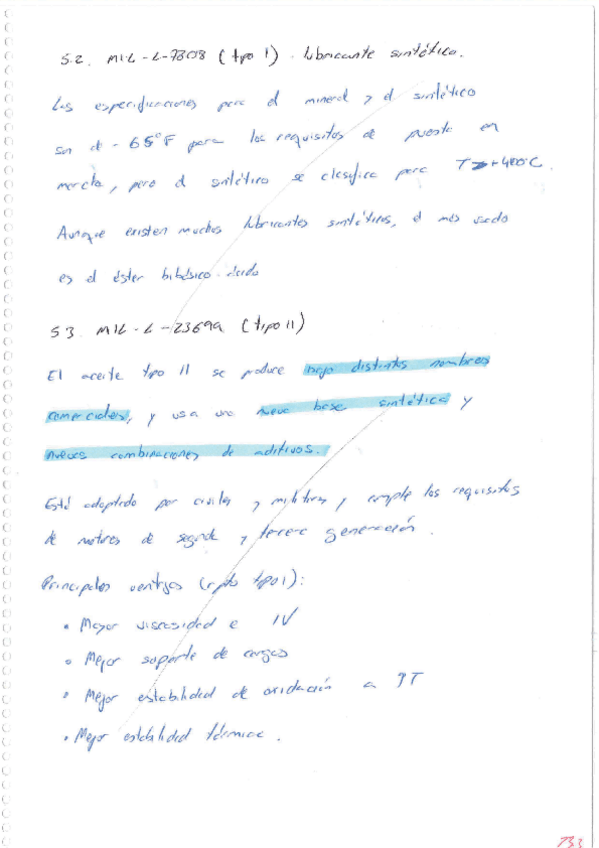 5.2. MIL-L-7808 (tipo I). lubricante sintético.
Las especificaciones para el mineral y el sintético
son de -65°F para los requisitos de puesta en
marcha, pero el sintético se clasifica para T>+400°C.
Aunque existen muchos lubricantes sintéticos, el más usado
es el éster bibásico ácido
5.3. MIL-L-23699 (tipo II)
El aceite tipo II se produce bajo distintos nombres
comerciales, y usa una nueva base sintética y
nuevas combinaciones de aditivos.
Está adoptado por civiles y militares y cumple los requisitos
de motores de segunda y tercera generación.
Principales ventajas (rpto tipo I):
• Mayor viscosidad e IV
• Mejor soporte de cargas
• Mejor estabilidad de oxidación a ↑T
• Mejor estabilidad térmica.
733